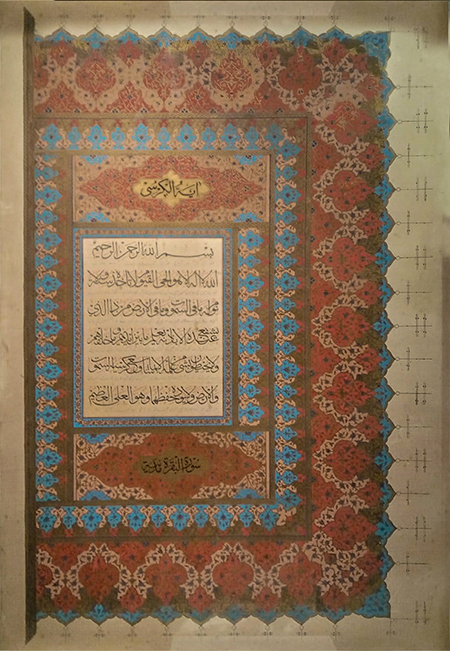 اية الكرسي
بسم الله الرحمن الرحيم
الله لا اله الا هو الحي القيوم لا تاخذه سنة ولا
نوم له ما في السموات وما في الارض من ذا الذي
يشفع عنده الا باذنه يعلم ما بين ايديهم وما خلفهم
ولا يحيطون بشي من علمه الا بما شا وسع كرسيه السموات
والارض ولا يؤده حفظهما وهو العلي العظيم
سورة البقرة مدنية